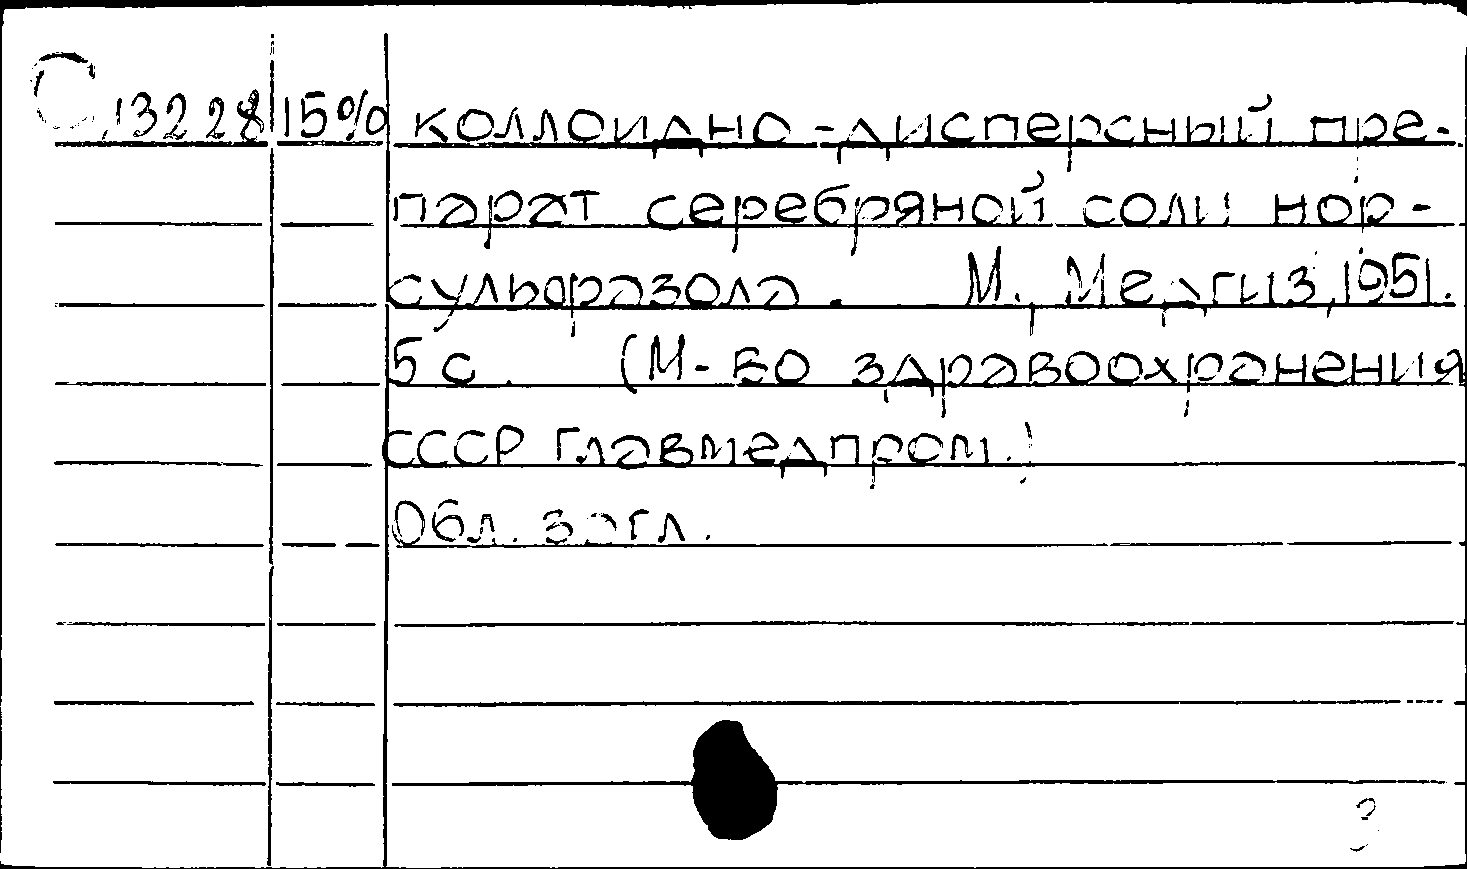 С,13228 15% коллоидно-дисперсный пре-
парат серебряной соли нор-
сульфазола. М., Медгиз, 1951.
5 с. (М-во здравоохранения
СССР Главмедпром.)
Обл. загл.
3